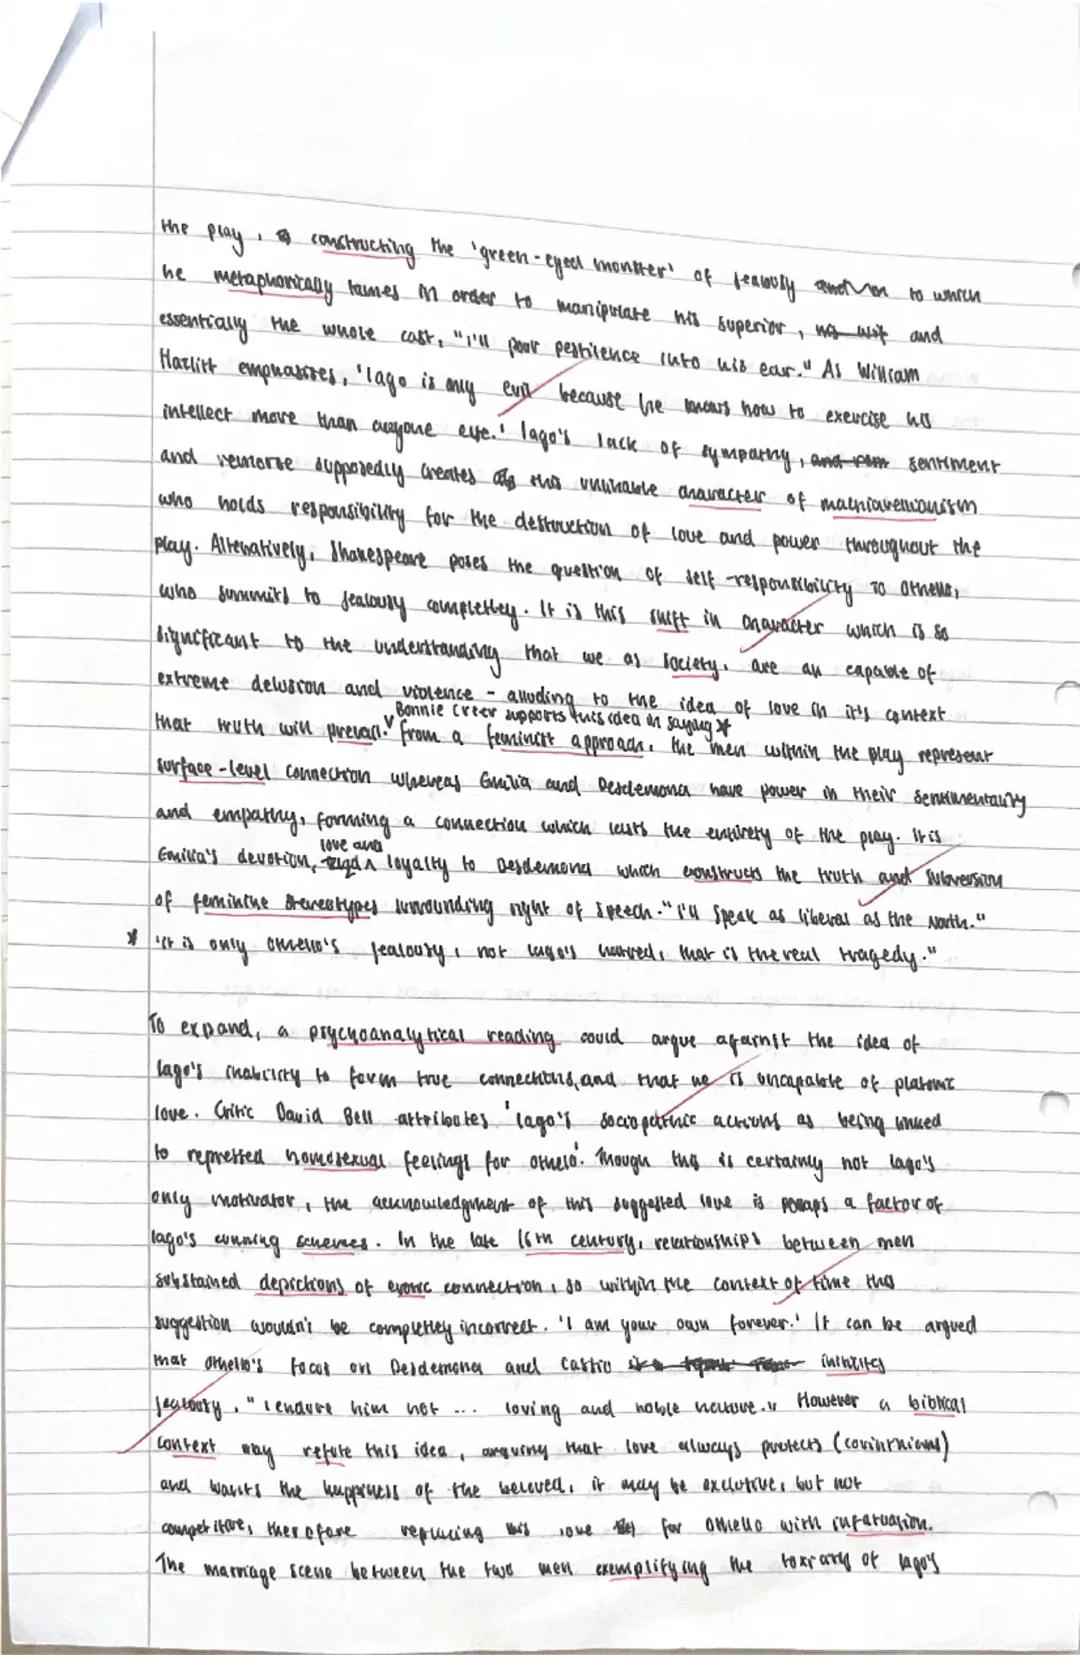 the play, constructing the 'green-eyed monster' of jealousy to which
he metaphorically tames in order to manipulate his superior, and
essentially the whole cast, "I'll pour pestilence into his ear." As William
Hazlitt emphasises, 'Iago is only evil because he knows how to exercise his
intellect more than anyone else.' Iago's lack of sympathy, and rem sentiment
and remorse supposedly creates this unlikable character of machiavellianism
who holds responsibility for the destruction of love and power throughout the
play. Altenatively, Shakespeare poses the question of self-responsibility to Othello,
who summits to jealousy completley. It is this shift in character which is so
significant to the understanding that we as society, are all capable of
extreme delusion and violence - alluding to the idea of love in it's context
Bonnie Creer supports this idea in saying *
that truth will prevail. From a feminist approach, the men within the play represent
surface-level connection whereas Emilia and Desdemona have power in their sentimentality
and empathy, forming a connection which lasts the entirety of the play. It is
love and
Emilia's devotion, loyalty to Desdemona which constructs the truth and subversion
of feminine stereotypes surrounding right of speech. "I'll speak as liberal as the North."
* 'it is only Othello's jealousy, not Iago's hatred, that is the real tragedy."
To expand, a psychoanalytical reading could argue against the idea of
Iago's inability to form true connections, and that he is uncapable of platonic
love. Critic David Bell attributes 'Iago's sociopathic actions as being linked
to repressed homosexual feelings for Othello'. Though this is certainly not Iago's
only motivator, the acknowledgment of this suggested love is perhaps a factor of
Iago's cunning schemes. In the late 16th century, relationships between men
substained depictions of erotic connection, so within the context of time this
suggestion wouldn't be completley incorrect. 'I am your own forever.' It can be argued
that Othello's focus on Desdemona and Cassio initites
jealousy, "I endure him not ... loving and noble nature." However a biblical
context may refute this idea, arguing that love always protects (corinthians)
and wants the happiness of the beloved, it may be exclusive, but not
competitive, therefore replacing his love for Othello with infatuation.
The marriage scene between the two men exemplifying the toxicity of Iago's